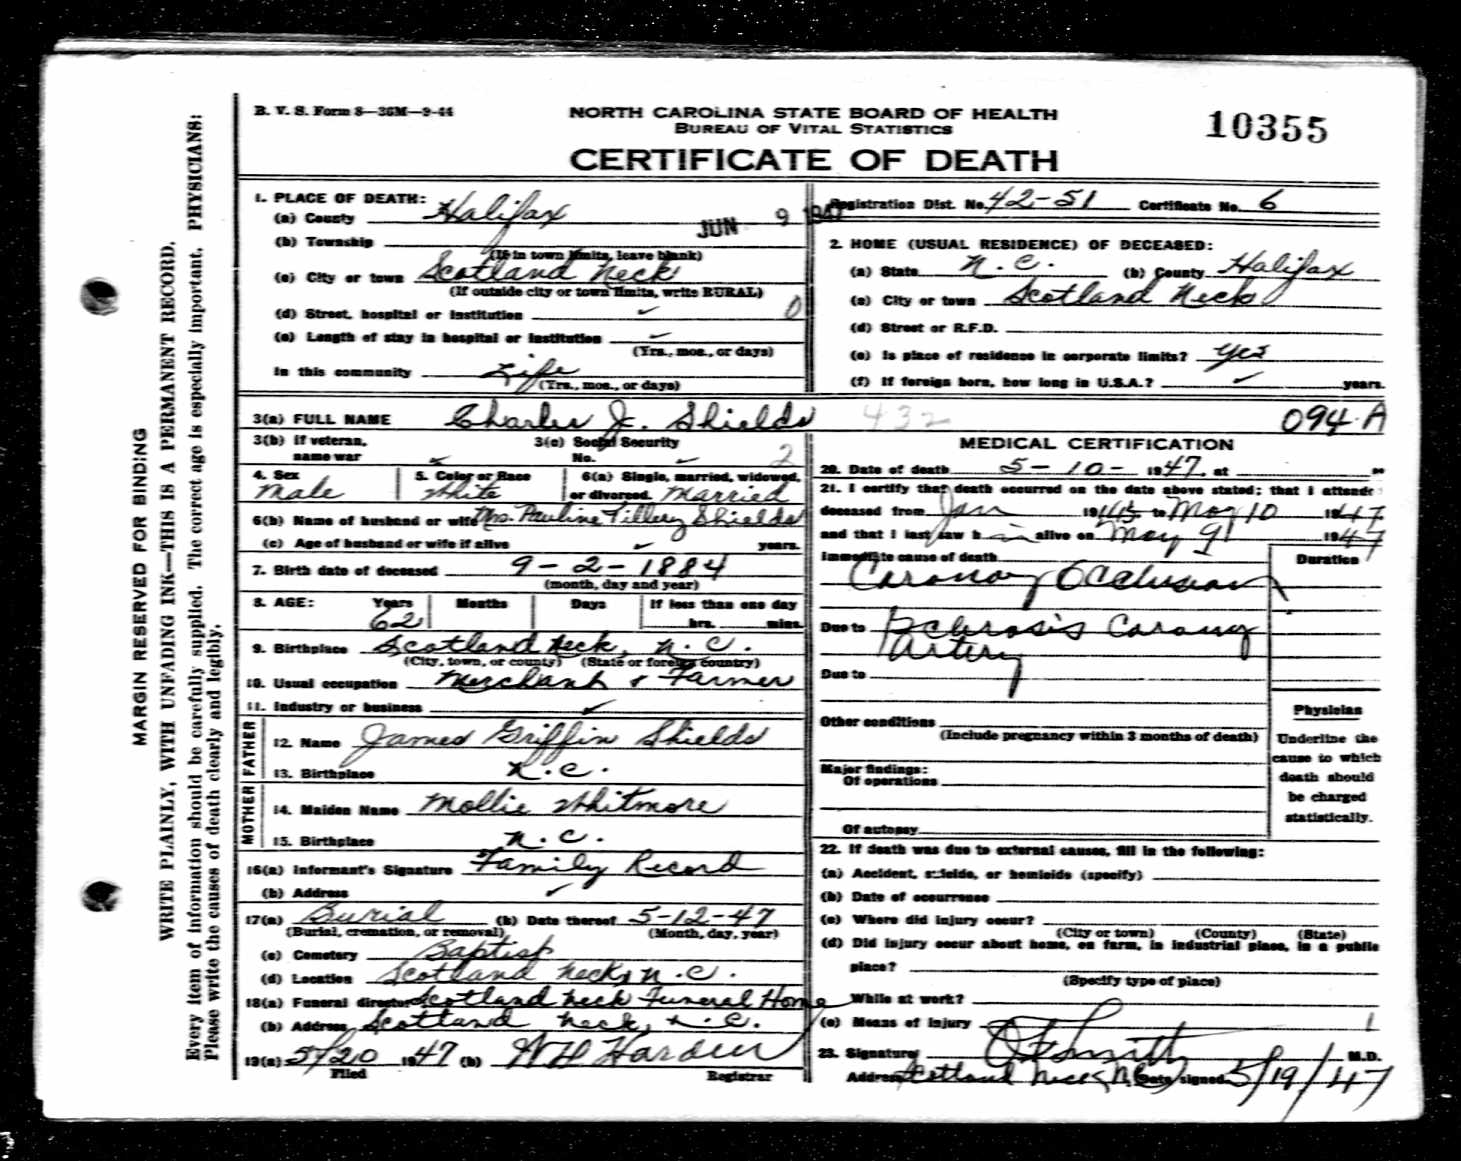 B. V. S. Form 8—36M—9-44
NORTH CAROLINA STATE BOARD OF HEALTH
BUREAU OF VITAL STATISTICS
CERTIFICATE OF DEATH
10355
MARGIN RESERVED FOR BINDING
WRITE PLAINLY, WITH UNFADING INK—THIS IS A PERMANENT RECORD.
Every item of information should be carefully supplied. The correct age is especially important. PHYSICIANS:
Please write the causes of death clearly and legibly.
1. PLACE OF DEATH:
(a) County Halifax
JUN 9 1947
(b) Township
(If in town limits, leave blank)
(c) City or town Scotland Neck
(If outside city or town limits, write RURAL)
(d) Street, hospital or institution ✓ 0
(e) Length of stay in hospital or institution ✓
(Yrs., mos., or days)
In this community Life
(Yrs., mos., or days)
Registration Dist. No. 42-51 Certificate No. 6
2. HOME (USUAL RESIDENCE) OF DECEASED:
(a) State N. C. (b) County Halifax
(c) City or town Scotland Neck
(d) Street or R.F.D.
(e) Is place of residence in corporate limits? yes
(f) If foreign born, how long in U.S.A.? ✓ years.
3(a) FULL NAME Charles J. Shields 432 094-A
3(b) If veteran, name war
3(c) Social Security No. ✓ 2
4. Sex Male
5. Color or Race White
6(a) Single, married, widowed, or divorced. Married
6(b) Name of husband or wife Mrs. Pauline Tillery Shields
(c) Age of husband or wife if alive ✓ years.
7. Birth date of deceased 9-2-1884
(month, day and year)
8. AGE: Years Months Days If less than one day
62 hrs. mins.
9. Birthplace Scotland Neck, N. C.
(City, town, or county) (State or foreign country)
10. Usual occupation Merchant & Farmer
11. Industry or business ✓
FATHER
12. Name James Griffin Shields
13. Birthplace N. C.
MOTHER
14. Maiden Name Mollie Whitmore
15. Birthplace N. C.
16(a) Informant's Signature Family Record
(b) Address ✓
17(a) Burial (b) Date thereof 5-12-47
(Burial, cremation, or removal) (Month, day, year)
(c) Cemetery Baptist
(d) Location Scotland Neck, N. C.
18(a) Funeral director Scotland Neck Funeral Home
(b) Address Scotland Neck, N. C.
19(a) 5/20 1947 (b) W H Harden
Filed Registrar
MEDICAL CERTIFICATION
20. Date of death 5-10- 1947, at m
21. I certify that death occurred on the date above stated; that I attended
deceased from Jan 1945 to May 10 1947
and that I last saw him alive on May 9 1947
Immediate cause of death Duration
Coronary Occlusion
Due to Sclerosis Coronary
Artery
Due to
Other conditions
(Include pregnancy within 3 months of death)
Major findings:
Of operations
Of autopsy
Physician
Underline the
cause to which
death should
be charged
statistically.
22. If death was due to external causes, fill in the following:
(a) Accident, suicide, or homicide (specify)
(b) Date of occurrence
(c) Where did injury occur?
(City or town) (County) (State)
(d) Did injury occur about home, on farm, in industrial place, in a public
place?
(Specify type of place)
While at work?
(e) Means of injury 1
23. Signature O F Smith M.D.
Address Scotland Neck, N. C. Date signed 5/19/47